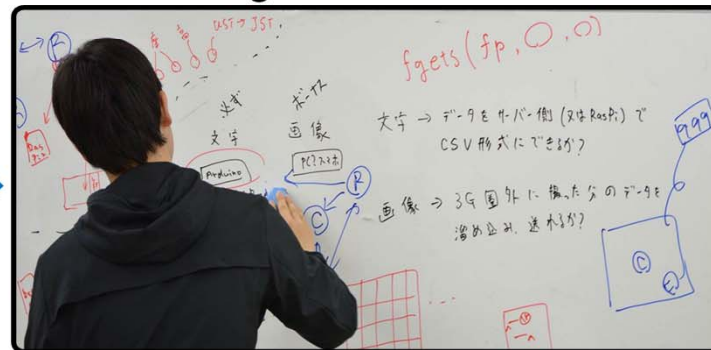 UST→JST.
fgets(fp, 〇, 〇)
必ず
ボーナス
文字
画像
Arduino
PC?スマホ
R
C
R
文字 → データをサーバー側(又はRasPi)で
CSV形式にできるか?
画像 → 3G圏外に撮った分のデータを
溜め込み、送れるか?
999
C
E